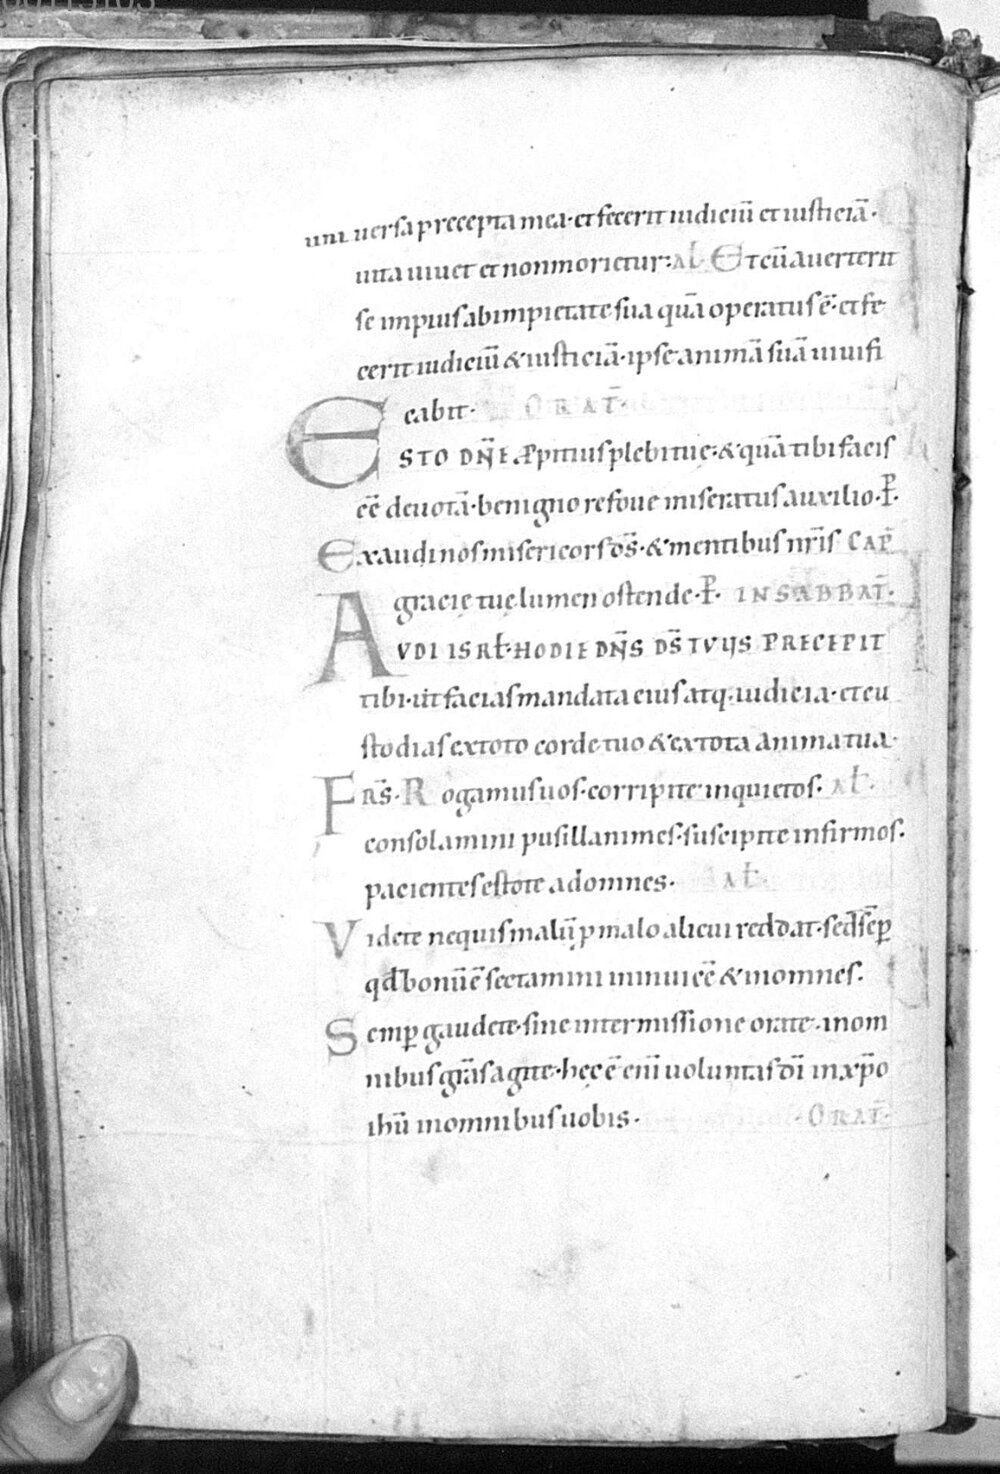 universa precepta mea· et fecerit iudiciū et iusticiā·
vita vivet et non morietur· Al̄ Et cū averterit
se impius ab impietate sua quā operatus ē· et fe
cerit iudiciū & iusticiā· ipse animā suā vivifi
cabit· ORAT̄·
ESTO DÑE ꝓpitius plebi tuę· & quā tibi facis
eē devotā· benigno refove miseratus auxilio· P̄·
Exaudi nos misericors d̄s· & mentibus nr̄is CAP̄
gracię tuę lumen ostende· P̄· IN SABBAT̄·
AUDI ISRL̄· HODIE DÑS DS̄ TUUS PRECEPIT
tibi· ut facias mandata eius atq· iudicia· et cu
stodias ex toto corde tuo & ex tota anima tua·
FRS̄· Rogamus vos· corripite inquietos· Al̄·
consolamini pusillanimes· suscipite infirmos·
pacientes estote ad omnes· Al̄·
Videte ne quis malū ꝑ malo alicui reddat· sed sēp
qđ bonū ē sectamini in invicē & in omnes·
Semꝑ gaudete· sine intermissione orate· in om
nibus grās agite· hęc ē enī voluntas dī in xp̄o
ihū in omnibus vobis· ORAT̄·